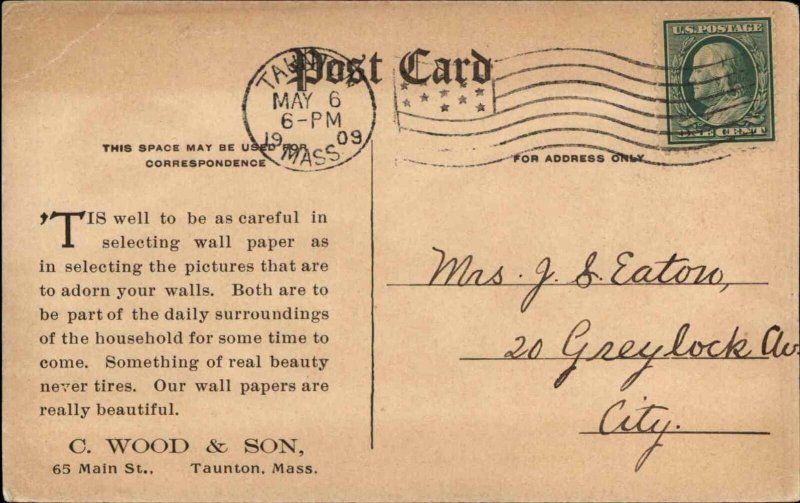 Post Card
TAUNTON
MAY 6
6-PM
1909
MASS.
U.S. POSTAGE
ONE CENT
THIS SPACE MAY BE USED FOR
CORRESPONDENCE
FOR ADDRESS ONLY
'TIS well to be as careful in
selecting wall paper as
in selecting the pictures that are
to adorn your walls. Both are to
be part of the daily surroundings
of the household for some time to
come. Something of real beauty
never tires. Our wall papers are
really beautiful.
C. WOOD & SON,
65 Main St., Taunton, Mass.
Mrs. J. S. Eaton,
20 Greylock Av
City.